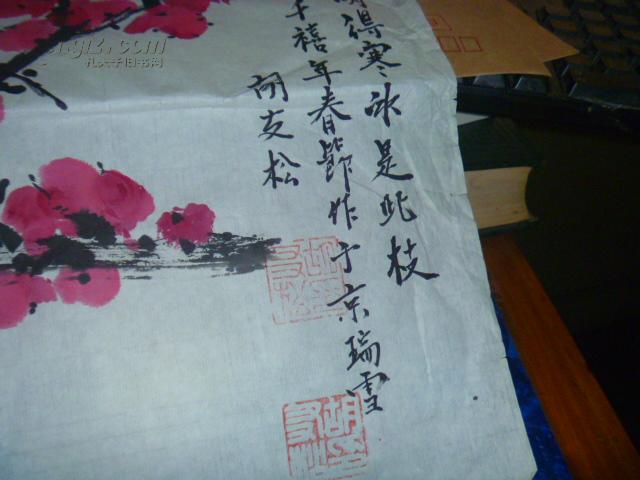 得寒冰是此枝
千禧年春节作于京瑞雪
胡友松
孔夫子旧书网